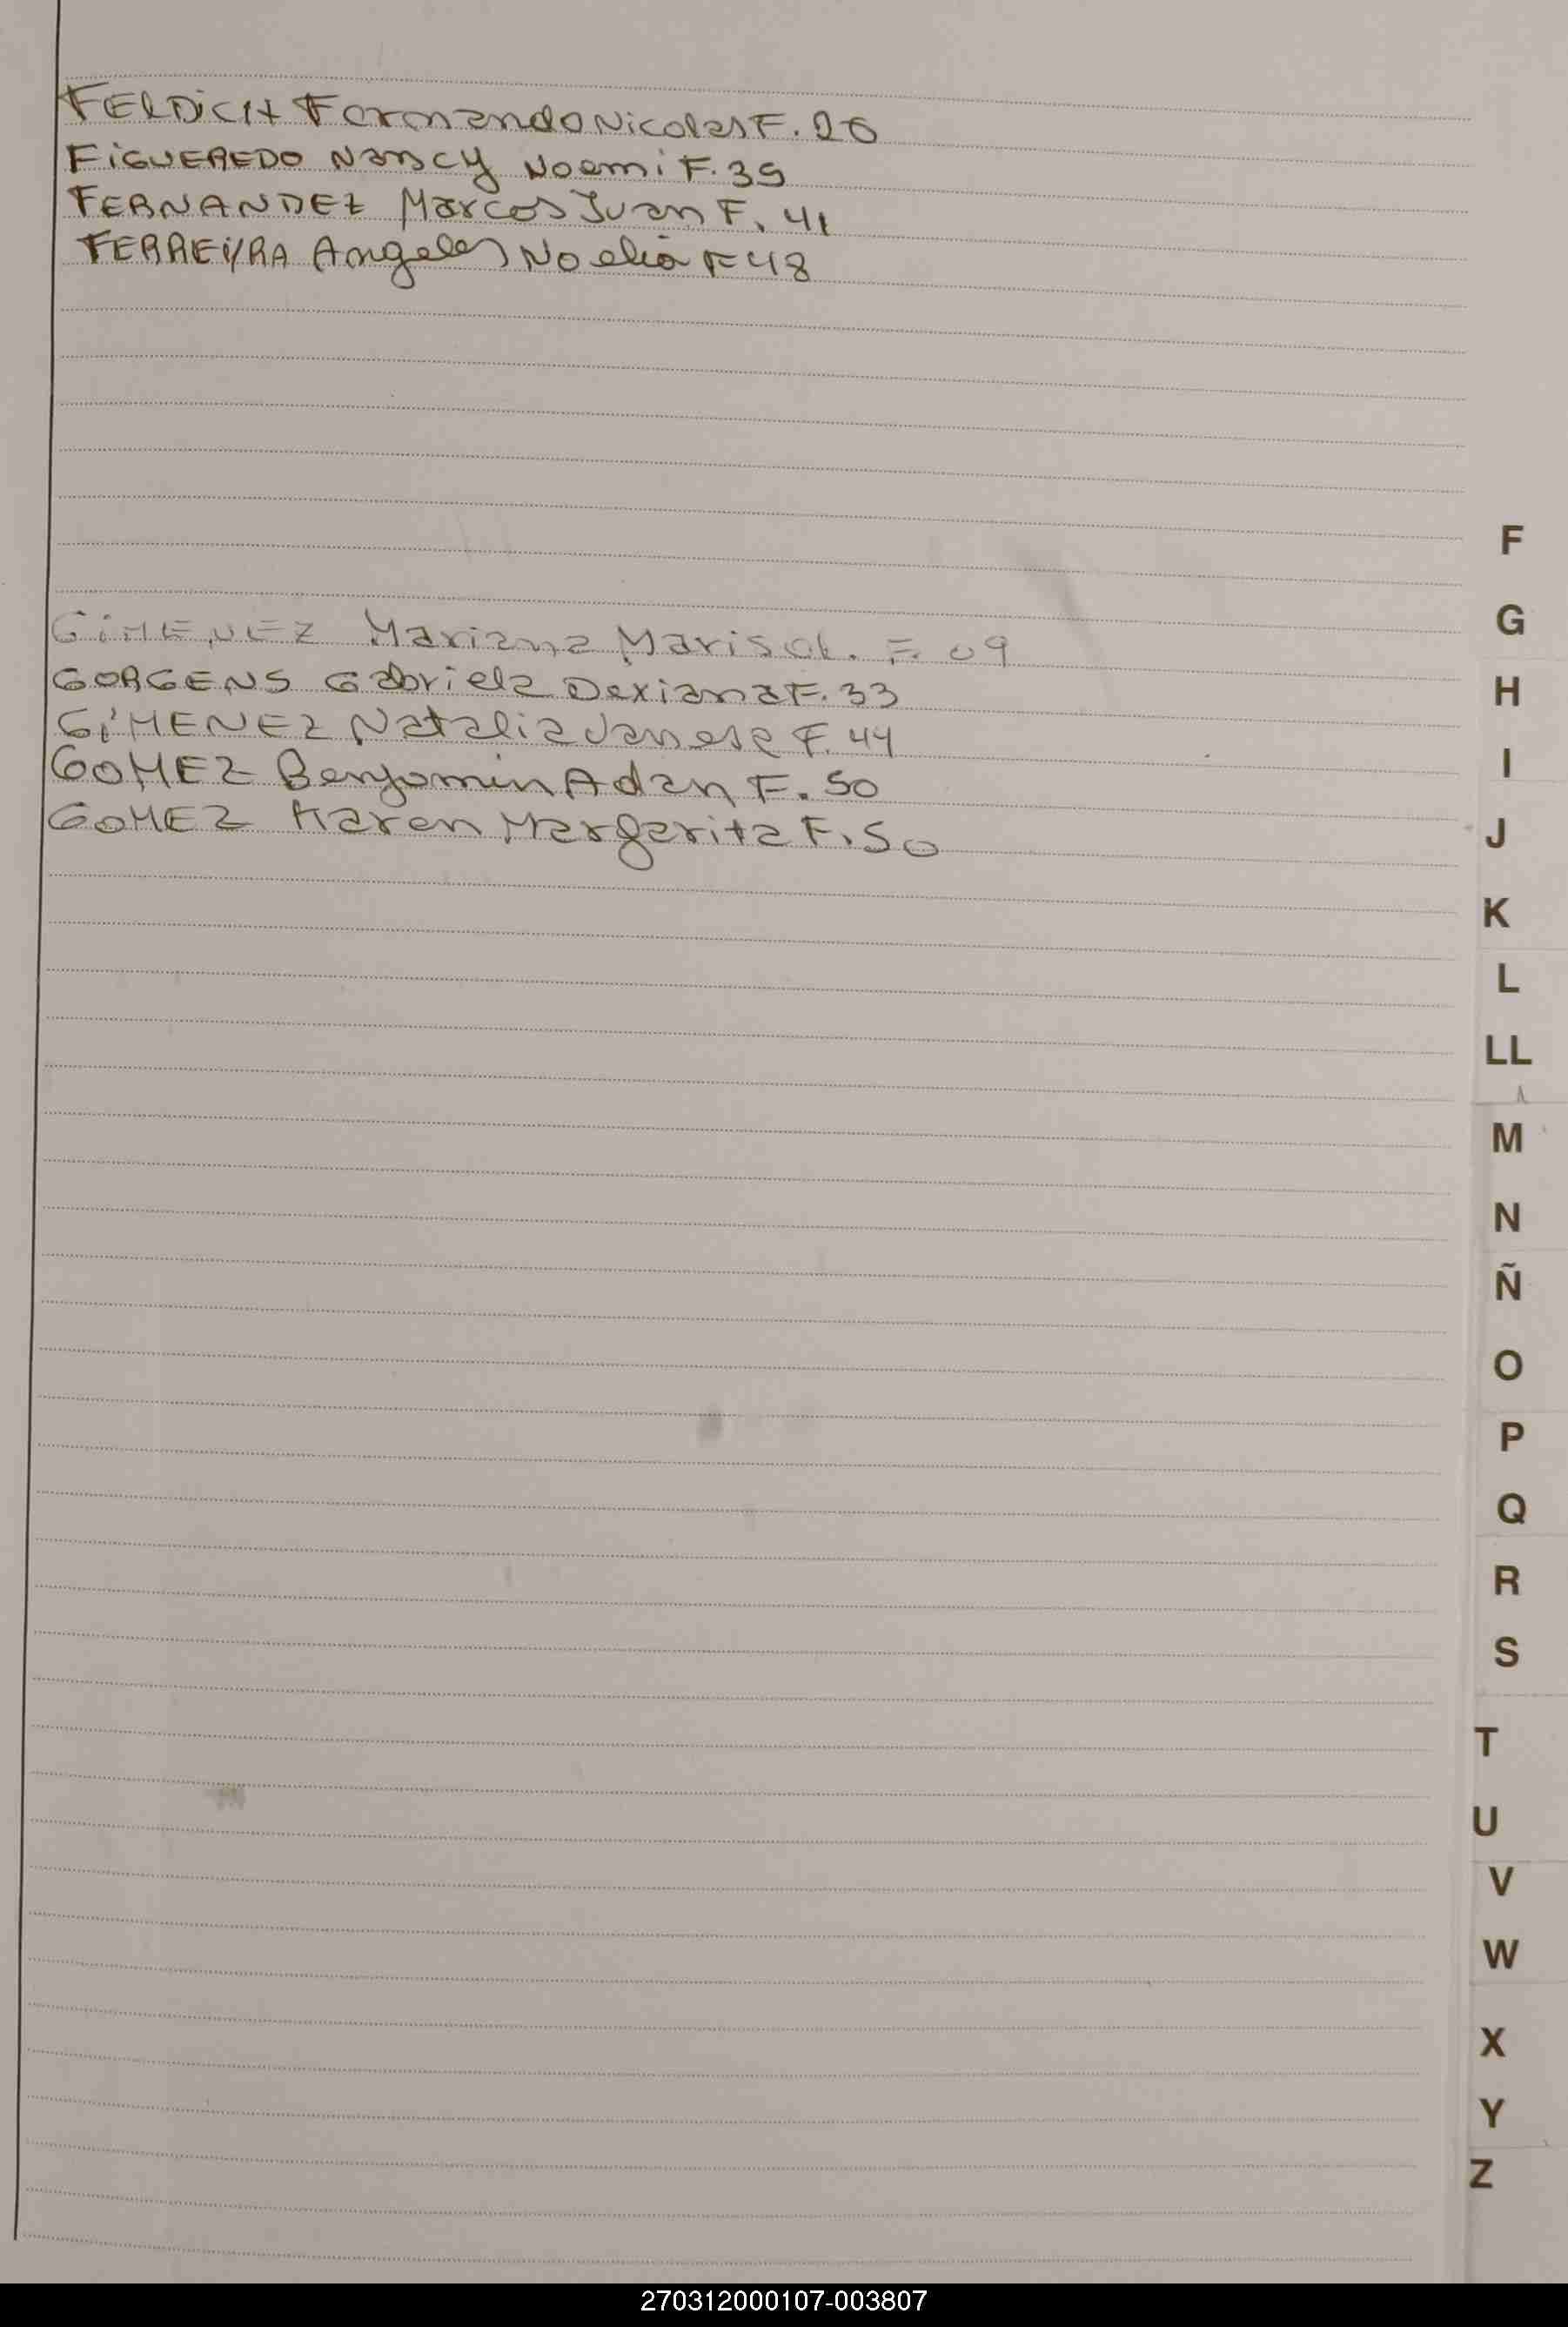 FELDICH Fernando Nicolas F. 26
FIGUEREDO Nancy Noemi F. 39
FERNANDEZ Marcos Juan F. 41
FERREIRA Angeles Noelia F 48
GIMENEZ Mariana Marisol. F. 09
GORGENS Gabriela Dexiana F. 33
GIMENEZ Natalia Vanesa F. 44
GOMEZ Benjamin Adan F. 50
GOMEZ Karen Margarita F. 50
F
G
H
I
J
K
L
LL
M
N
Ñ
O
P
Q
R
S
T
U
V
W
X
Y
Z
270312000107-003807